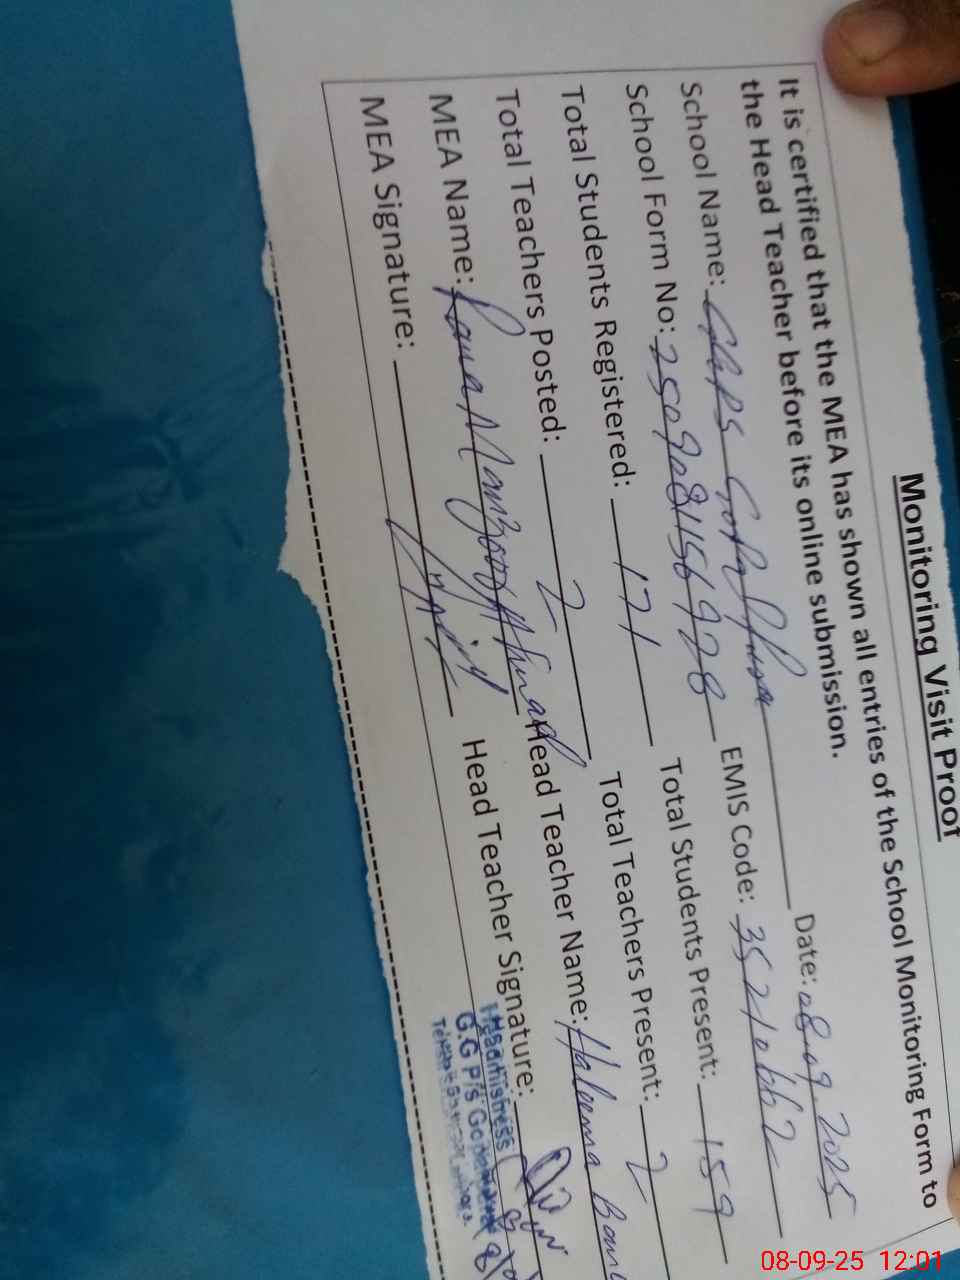 Monitoring Visit Proof
It is certified that the MEA has shown all entries of the School Monitoring Form to
the Head Teacher before its online submission.
School Name: GGPS Date: 08.09.2025
School Form No: EMIS Code: 35210662
Total Students Registered: 171 Total Students Present: 159
Total Teachers Posted: 2 Total Teachers Present: 2
MEA Name: Rana Manzoor Ahmad Head Teacher Name: Haleema
MEA Signature: Head Teacher Signature:
Headmistress
G.G P/S
08-09-25 12:01